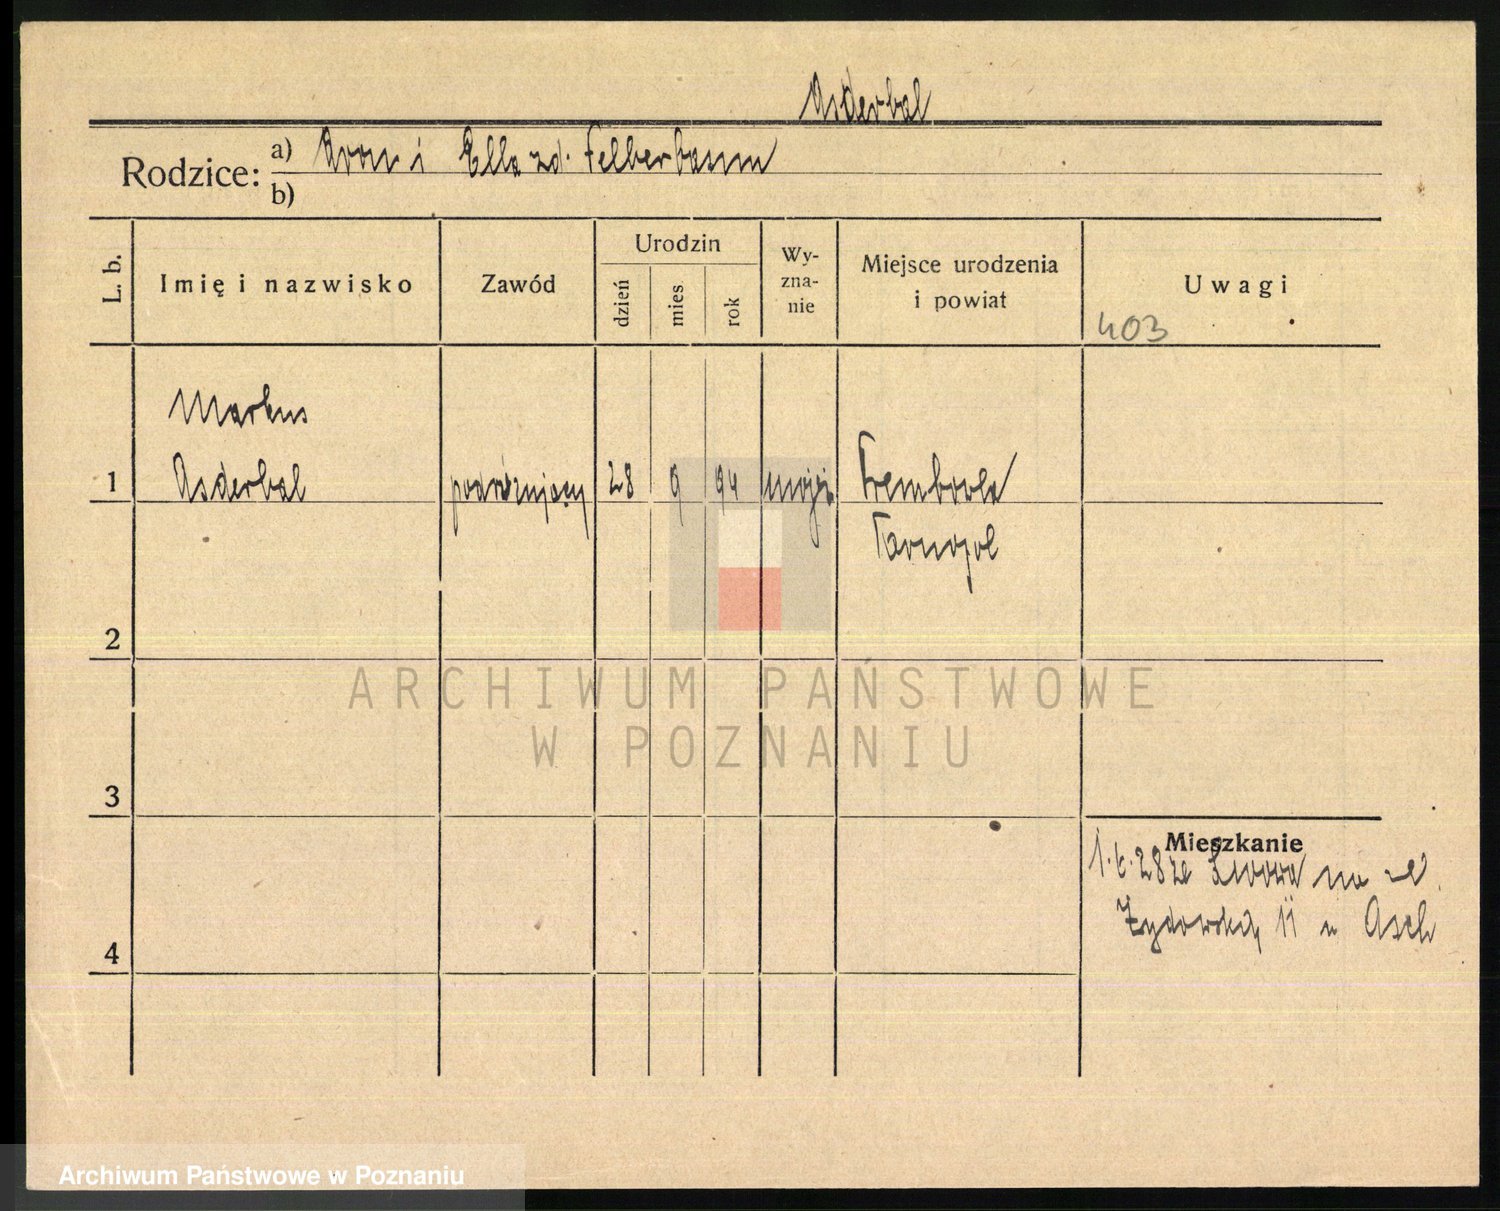 Asderbal
Rodzice: a) Aron i Ella zd. Felberbaum
b)
L. b. Imię i nazwisko Zawód Urodzin dzień mies rok Wy-zna-nie Miejsce urodzenia i powiat Uwagi
403
Markus
1 Asderbal podróżujący 28 9 94 mojż. Trembowla
Tarnopol
2
ARCHIWUM PAŃSTWOWE
W POZNANIU
3
Mieszkanie
1.6.28 ze Lwowa na ul.
Żydowską 11 u Asch
4
Archiwum Państwowe w Poznaniu